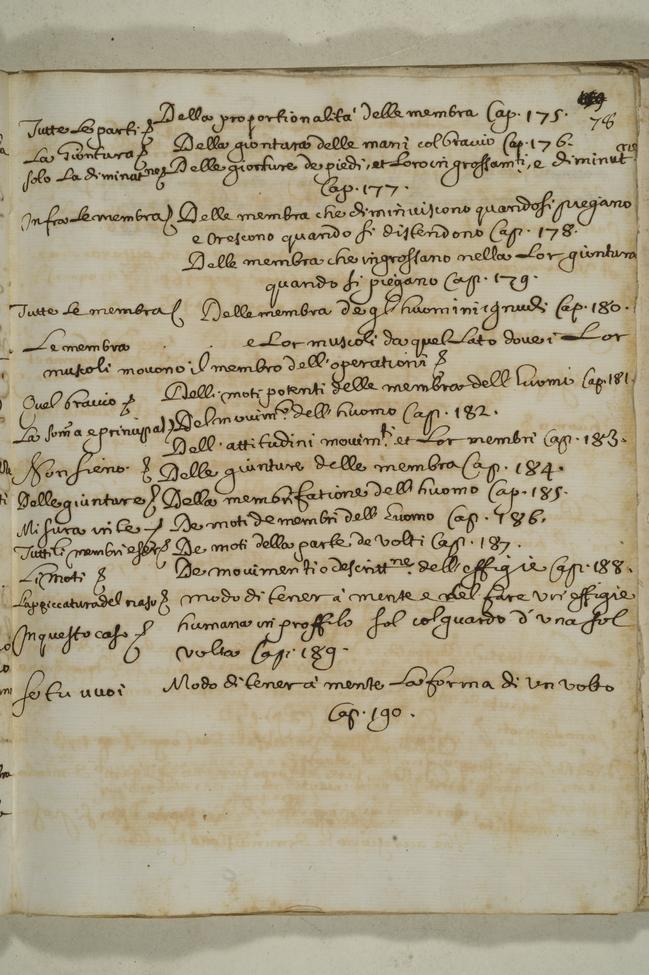 78
Tutte le parti Della proportionalità delle membra Cap. 175.
La Giontura Della giontura delle mani col bracio Cap. 176.
solo La diminut.ne Delle gionture de piedi, et loro ingrossam.ti, e diminut.ne
Cap. 177.
Infra le membra Delle membra che diminuiscono quando si piegano
e crescono quando si distendono Cap. 178.
Delle membra che ingrossano nella lor giontura
quando si piegano Cap. 179.
Tutte le membra Delle membra de gl'huomini ignudi Cap. 180.
Le membra e lor muscoli da quel lato dove i lor
muscoli movono il membro dell'operationi
Quel bracio Delli moti potenti delle membra dell'huomi Cap. 181.
La som̃a e principal Del movim.to dell'huomo Cap. 182.
Dell'attitudini movim.ti et lor membri Cap. 183.
Non sieno Delle giunture delle membra Cap. 184.
Delle giunture Della membrificatione dell'huomo Cap. 185.
Misura in te De moti de membri dell'huomo Cap. 186.
Tutti li membri De moti della parte de volti Cap. 187.
Li moti De movimenti o descritt.ne dell'effigie Cap. 188.
L'apiccatura del naso modo di tener à mente e del fare un effigie
In questo caso humana in proffilo sol col guardo d'una sol
volta Cap. 189.
se tu vuoi Modo di tener à mente la forma di un volto
Cap. 190.